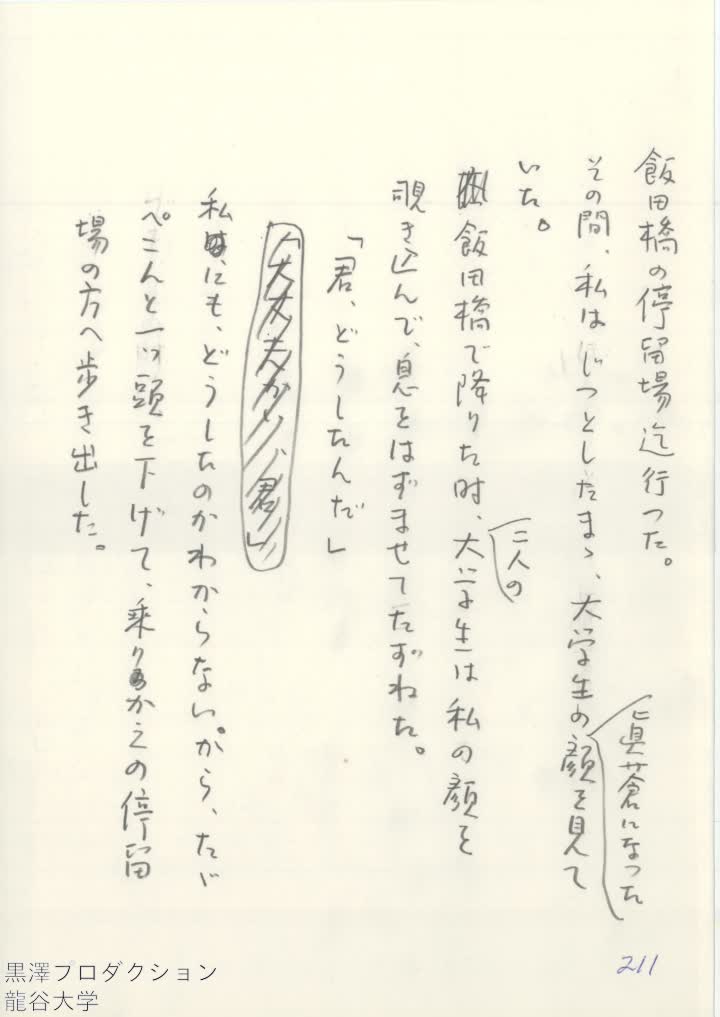 飯田橋の停留場迄行つた。
その間、私はじつとしたまゝ、大学生の顔を見て
眞蒼になつた
いた。
飯田橋で降りた時、大学生は私の顔を
二人の
覗き込んで、息をはずませてたずねた。
「君、どうしたんだ」
「大丈夫かい、君」
私にも、どうしたのかわからないから、たゞ
ぺこんと一つ頭を下げて、乗りかえの停留
場の方へ歩き出した。
211
黒澤プロダクション
龍谷大学